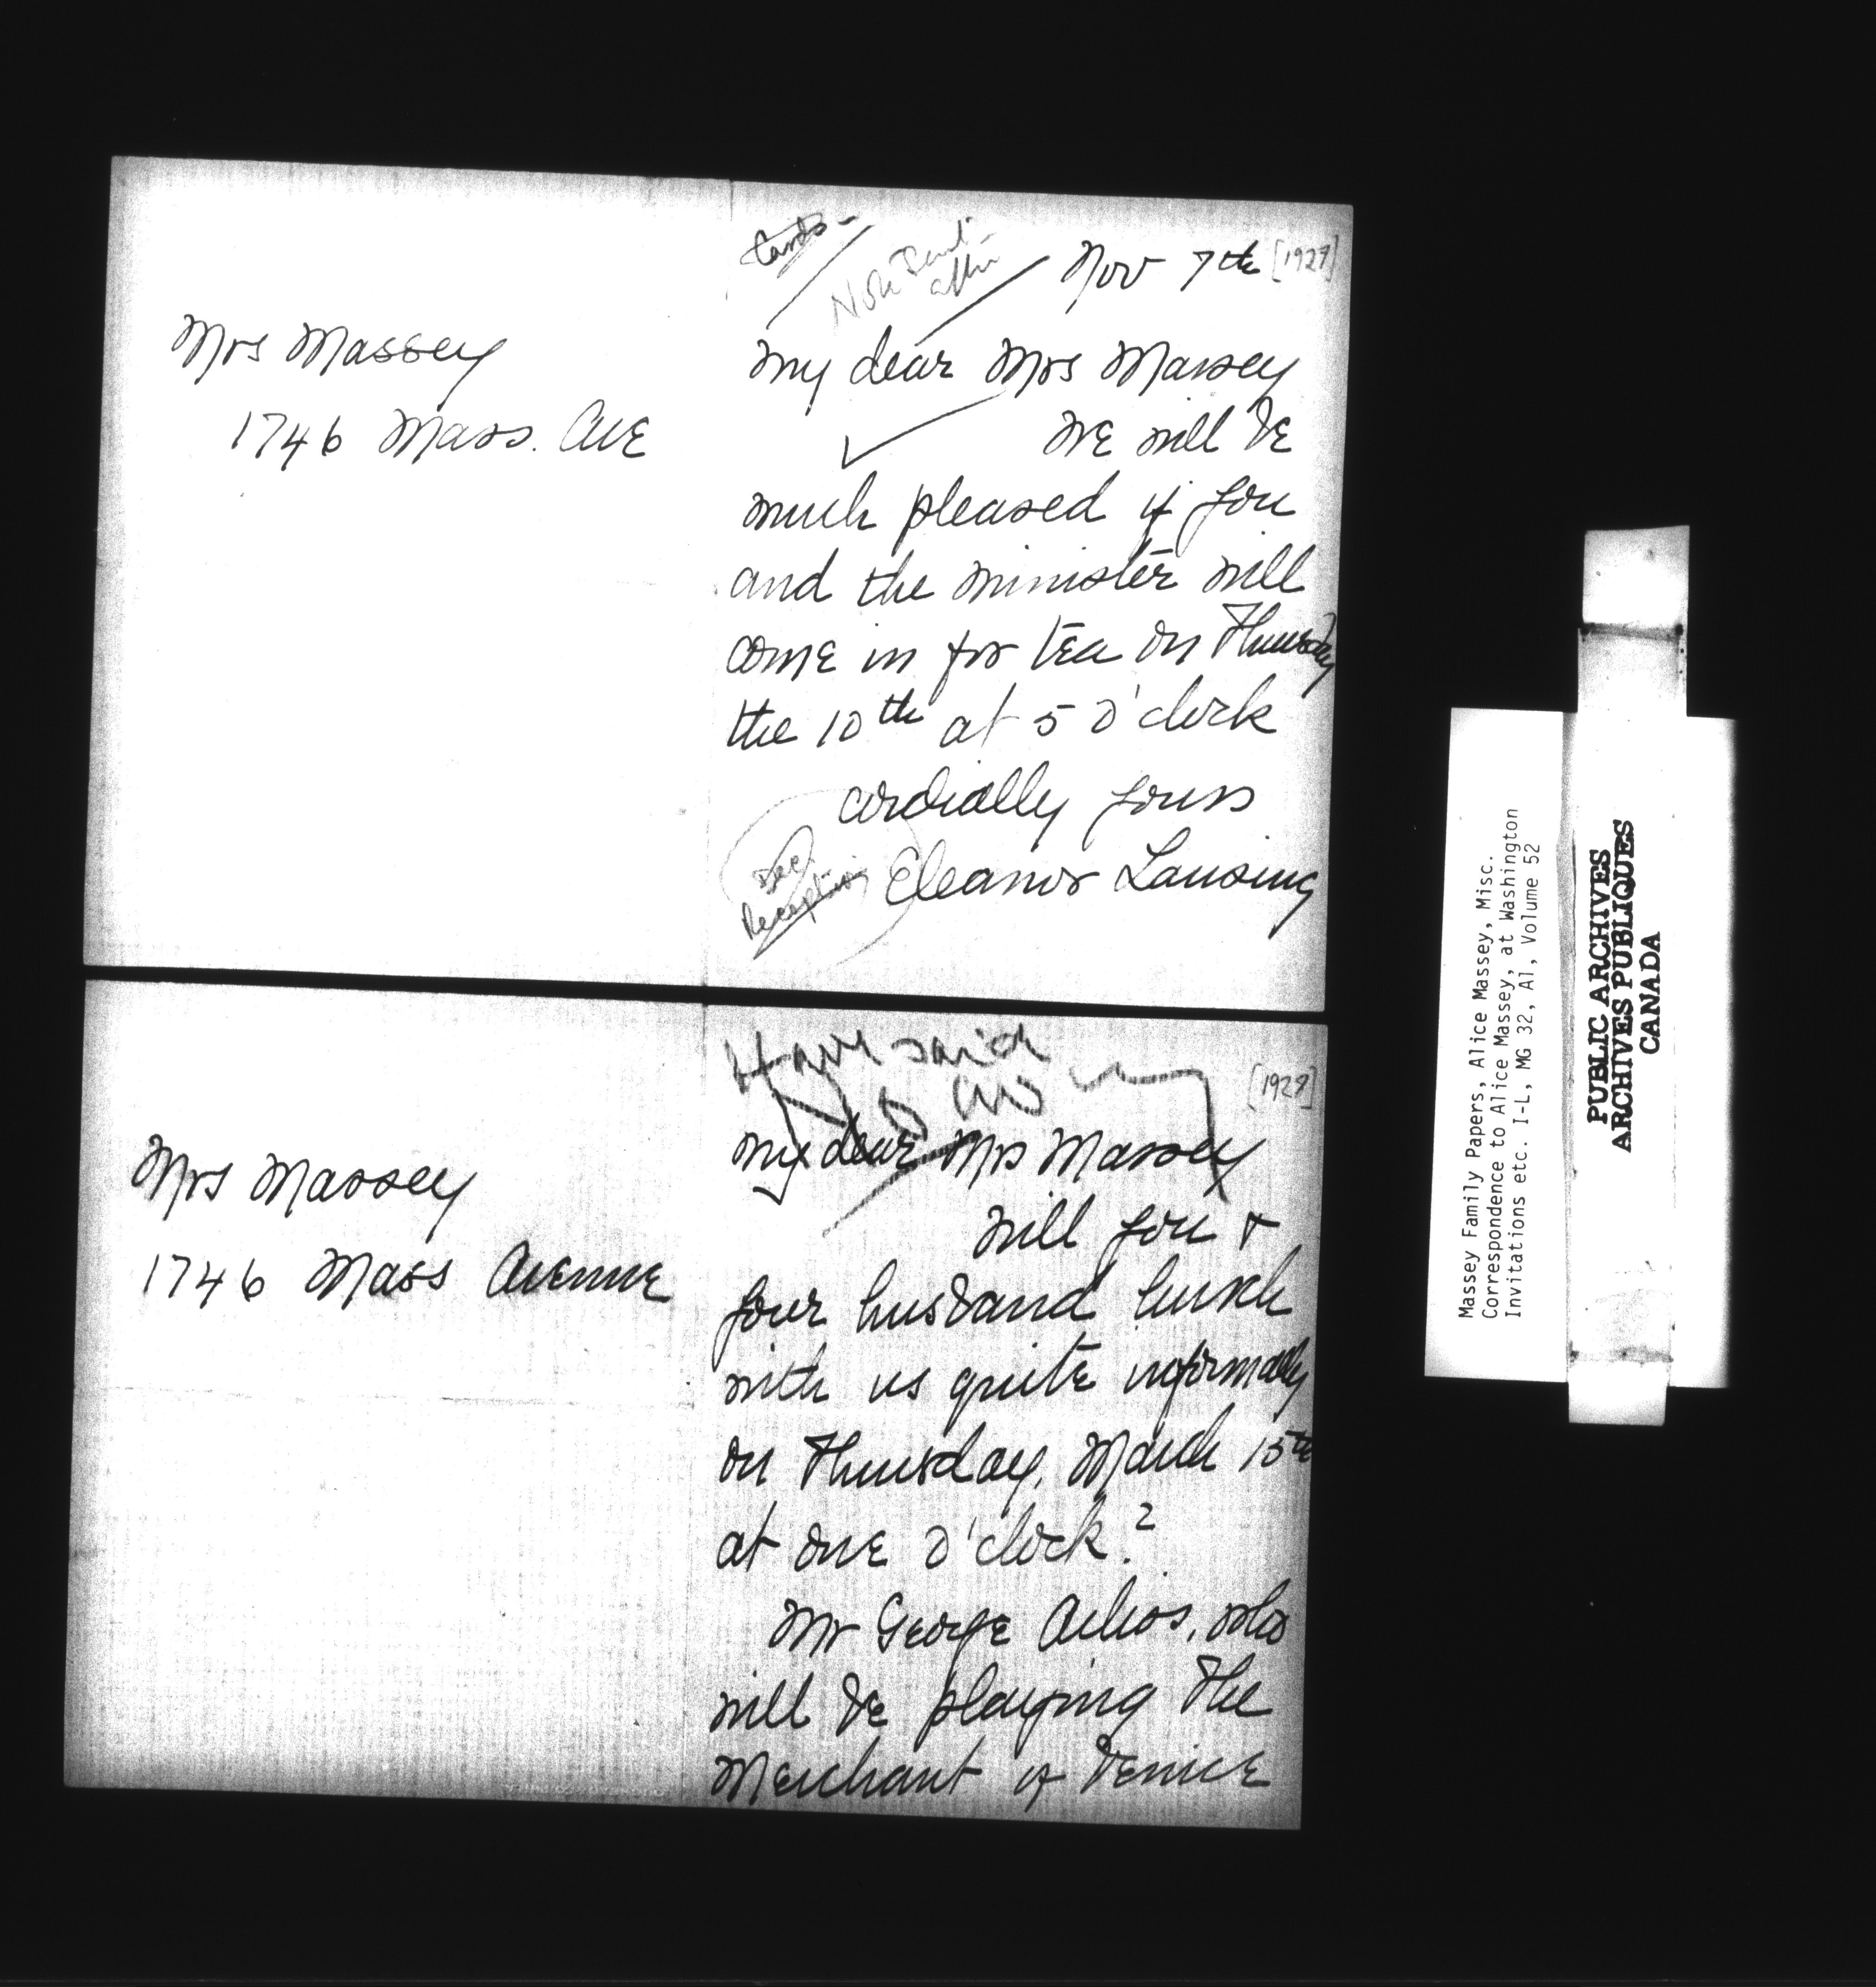 Mrs Massey
1746 Mass. Ave
Cards -
Note Sent
after
Nov 7th [1927]
My dear Mrs Massey
We will be
much pleased if you
and the Minister will
come in for tea on Thursday
the 10th at 5 o'clock
Cordially yours
Eleanor Lansing
Dec.
Reception
Mrs Massey
1746 Mass Avenue
Have said
no
[1928]
My dear Mrs Massey
Will you &
your husband lunch
with us quite informally
on Thursday, March 15th
at one o'clock?
Mr George Arliss, who
will be playing The
Merchant of Venice
Massey Family Papers, Alice Massey, Misc.
Correspondence to Alice Massey, at Washington
Invitations etc. I-L, MG 32, A1, Volume 52
PUBLIC ARCHIVES
ARCHIVES PUBLIQUES
CANADA